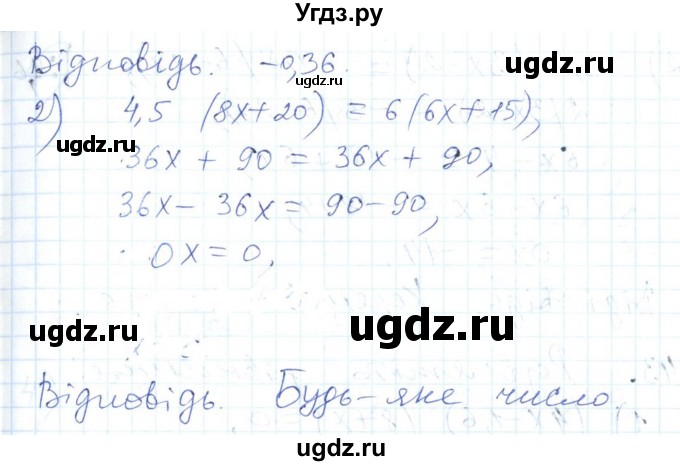 Угдз.ру
Відповідь. -0,36.
2) 4,5 (8x+20) = 6(6x+15),
36x + 90 = 36x + 90,
36x - 36x = 90-90,
0x = 0.
Відповідь. Будь-яке число.
ugdz.ru
ugdz.ru
ugdz.ru
ugdz.ru
ugdz.ru
ugdz.ru
ugdz.ru
ugdz.ru
ugdz.ru
ugdz.ru